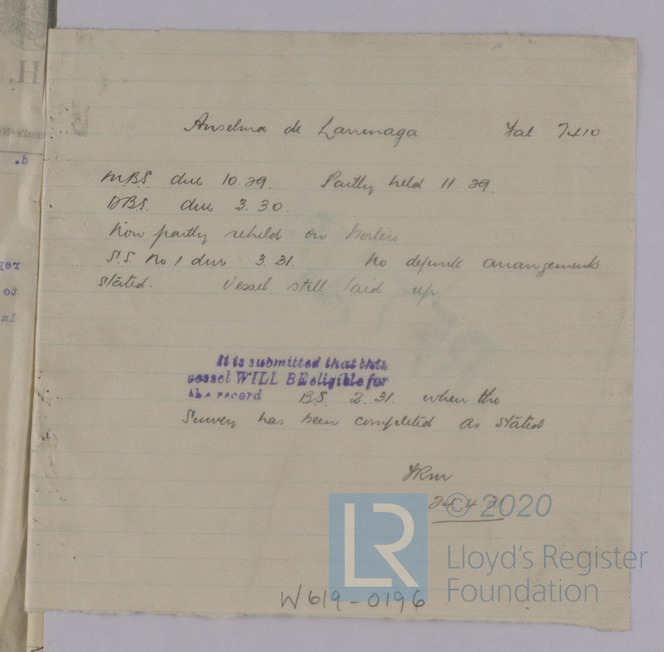 Anselma de Larrinaga Fal 7410
MBS. due 10.29. Partly held 11 29.
DBS. due 3.30.
Now partly reheld on boilers
S.S No 1 due 3 31. No definite arrangements
stated. Vessel still laid up
It is submitted that this
vessel WILL BE eligible for
the record B.S. 2.31. when the
Survey has been completed as stated
© 2020
LR
Lloyd's Register
Foundation
W619-0196